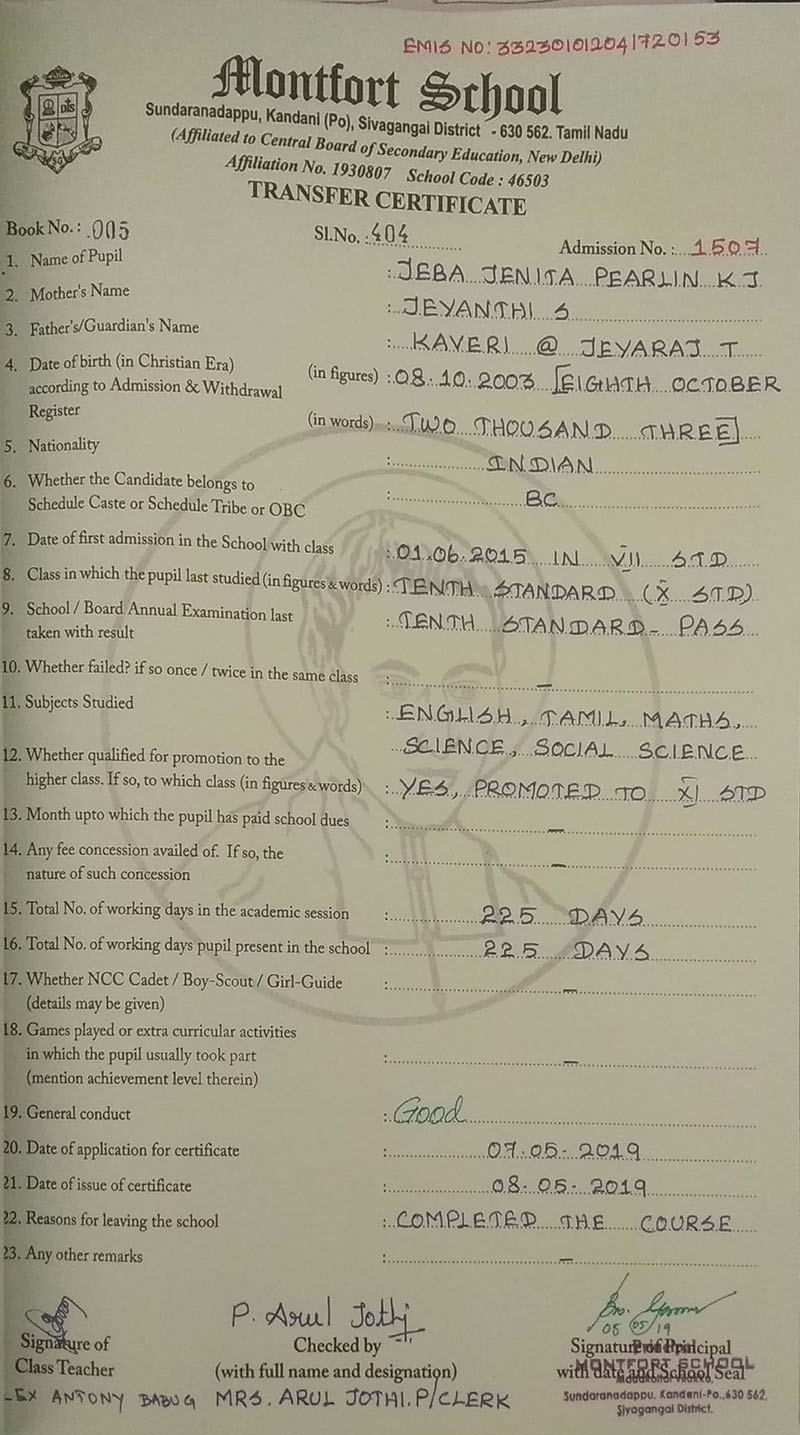 EMIS NO: 332301012041720153
Montfort School
Sundaranadappu, Kandani (Po), Sivagangai District - 630 562. Tamil Nadu
(Affiliated to Central Board of Secondary Education, New Delhi)
Affiliation No. 1930807 School Code : 46503
TRANSFER CERTIFICATE
Book No. : 005 Sl.No. : 404 Admission No. : 1507
1. Name of Pupil : JEBA JENITA PEARLIN K J
2. Mother's Name : JEYANTHI S
3. Father's/Guardian's Name : KAVERI @ JEYARAJ T
4. Date of birth (in Christian Era) (in figures) : 08.10.2003 [EIGHTH OCTOBER
according to Admission & Withdrawal
Register (in words) : TWO THOUSAND THREE]
5. Nationality : INDIAN
6. Whether the Candidate belongs to
Schedule Caste or Schedule Tribe or OBC : BC
7. Date of first admission in the School with class : 01.06.2015 IN VII STD
8. Class in which the pupil last studied (in figures & words) : TENTH STANDARD (X STD)
9. School / Board Annual Examination last
taken with result : TENTH STANDARD - PASS
10. Whether failed? if so once / twice in the same class : -
11. Subjects Studied : ENGLISH, TAMIL, MATHS,
SCIENCE, SOCIAL SCIENCE
12. Whether qualified for promotion to the
higher class. If so, to which class (in figures & words) : YES, PROMOTED TO XI STD
13. Month upto which the pupil has paid school dues : -
14. Any fee concession availed of. If so, the : -
nature of such concession
15. Total No. of working days in the academic session : 225 DAYS
16. Total No. of working days pupil present in the school : 225 DAYS
17. Whether NCC Cadet / Boy-Scout / Girl-Guide : -
(details may be given)
18. Games played or extra curricular activities
in which the pupil usually took part : -
(mention achievement level therein)
19. General conduct : Good
20. Date of application for certificate : 07.05.2019
21. Date of issue of certificate : 08.05.2019
22. Reasons for leaving the school : COMPLETED THE COURSE
23. Any other remarks : -
P. Arul Jothi
Signature of Checked by Signature of Principal
Class Teacher (with full name and designation) with date and School Seal
MONTFORT SCHOOL
LEX ANTONY BABU G MRS. ARUL JOTHI. P/CLERK
Sundaranadappu, Kandani-Po.,630 562,
Sivagangai District.